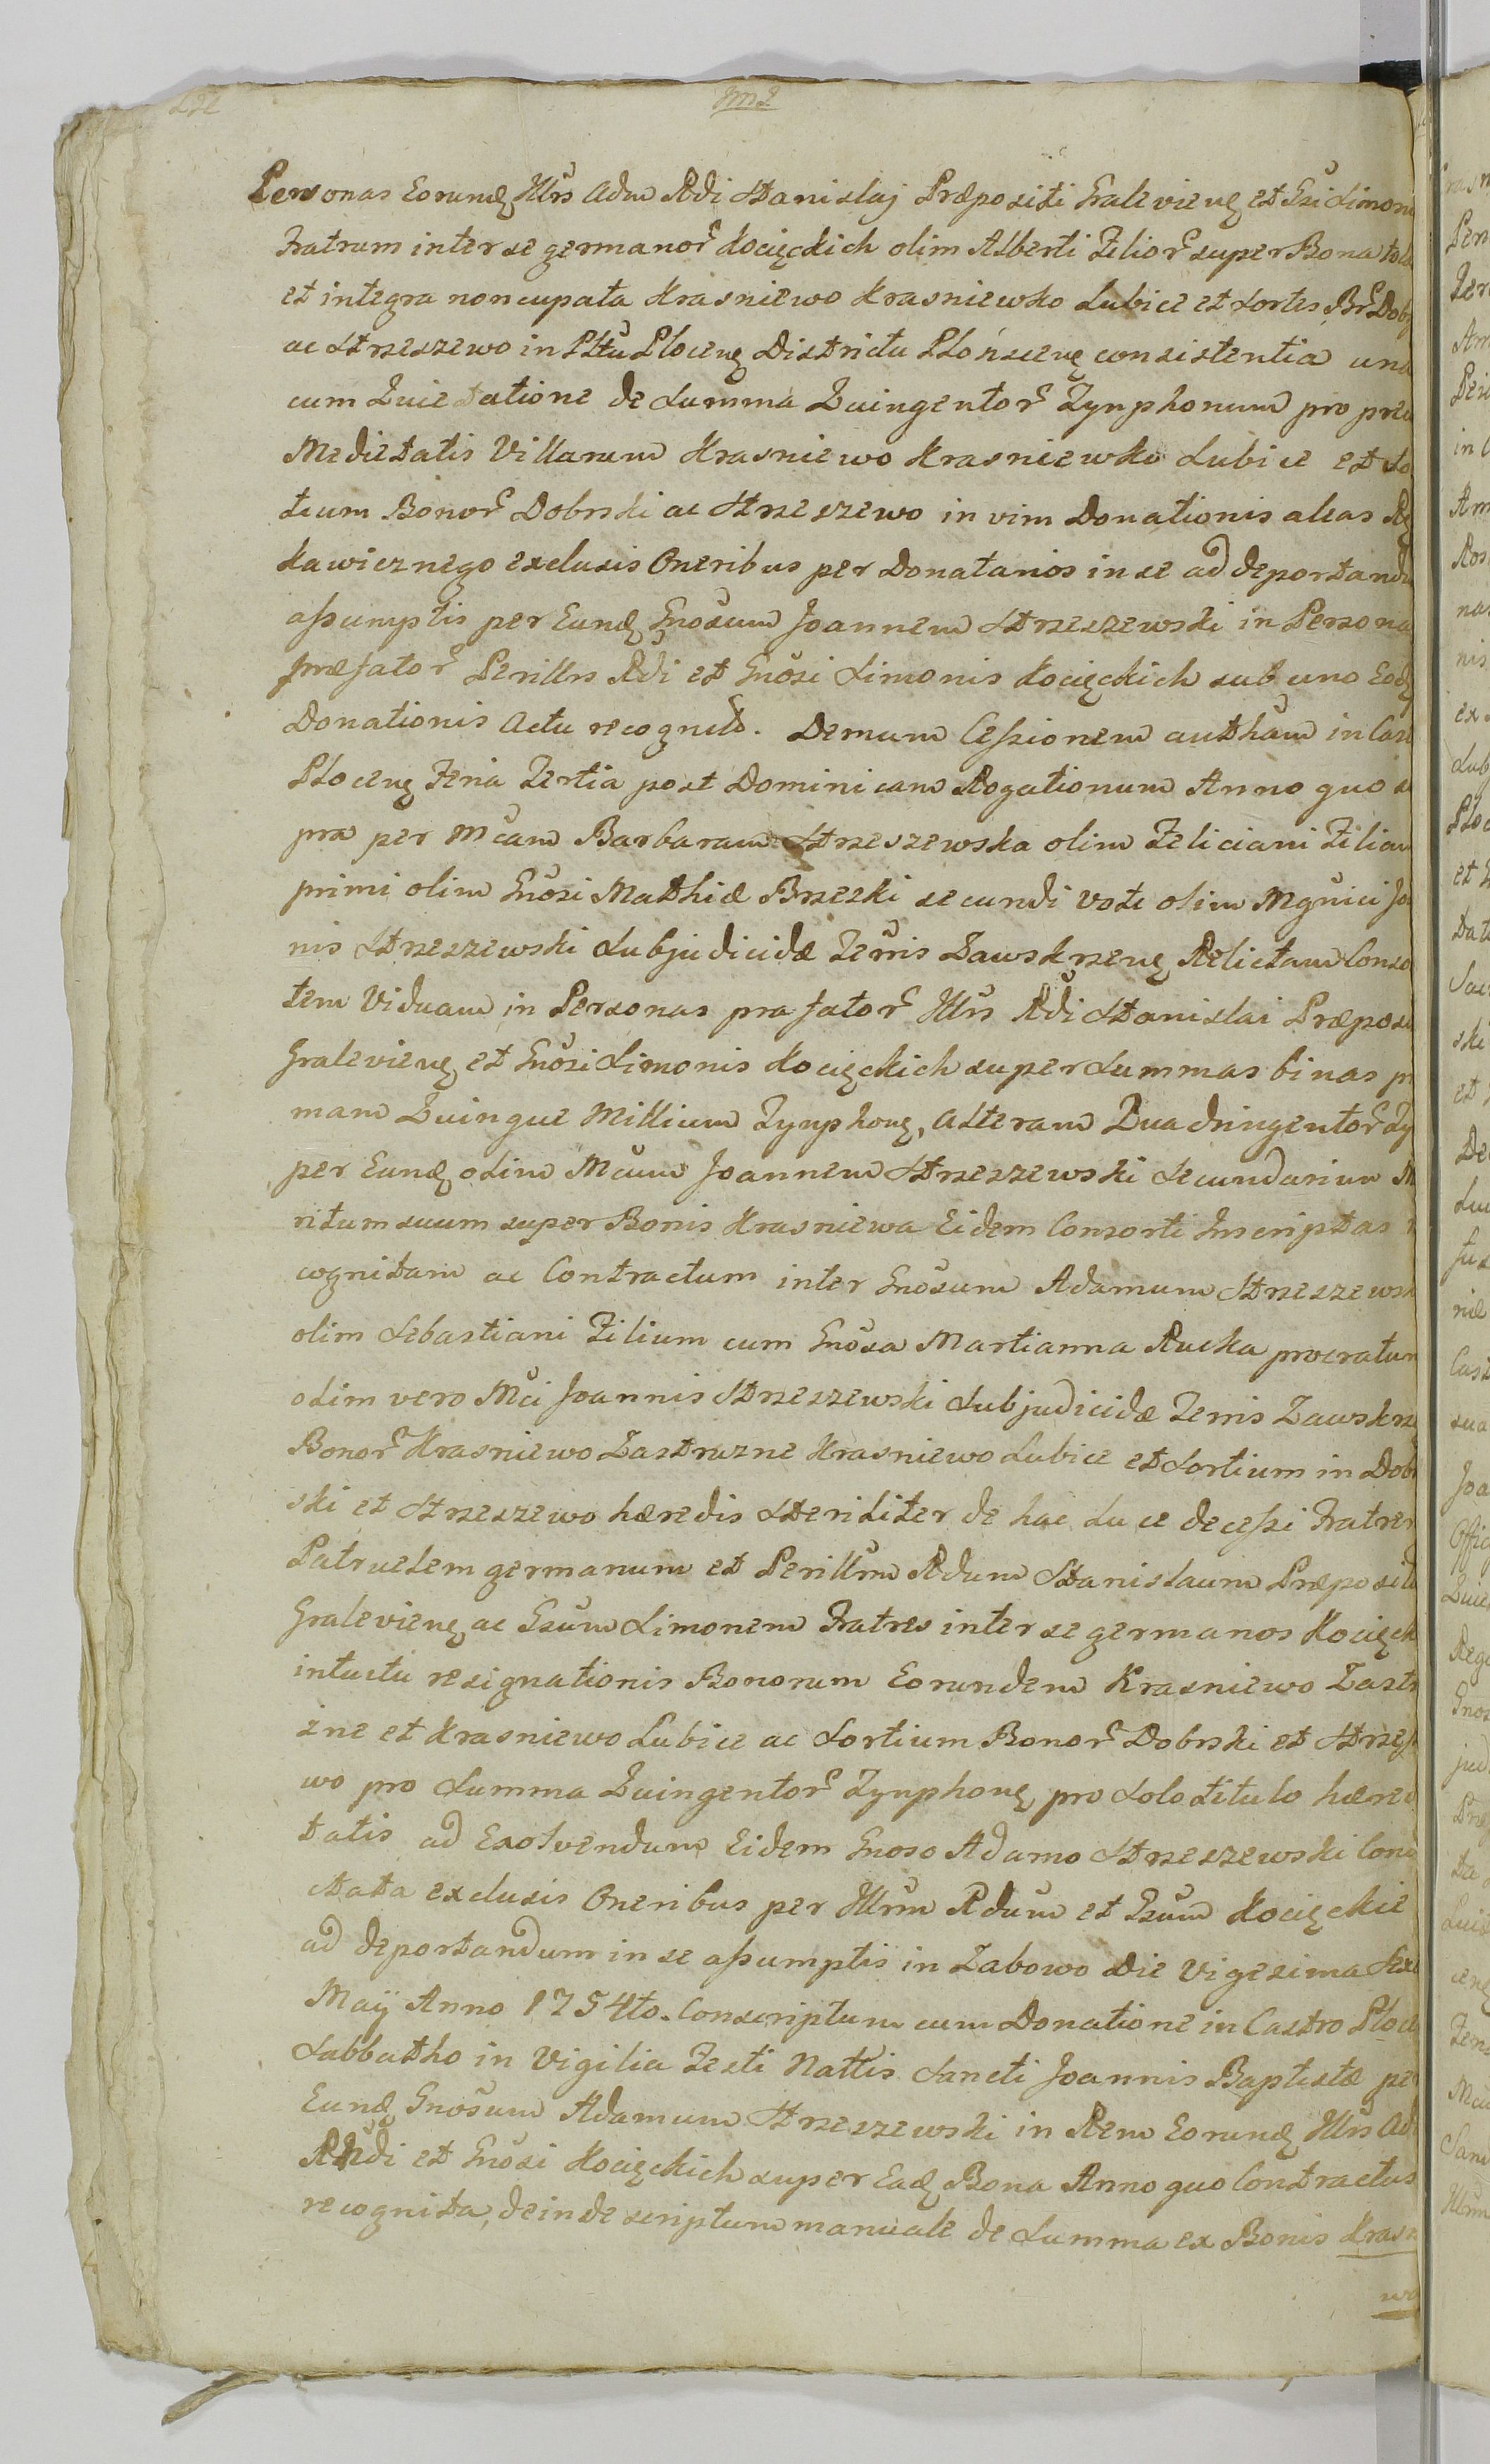 Personas Eorundę Illrs Adm Rdi Stanislaj Præpositi Gralevieng et Gsi Simon
Fratrum inter se germanor Kocięckich olim Alberti Filior super Bona tot
et integra noncupata Krasniewo Krasniewko Lubice et Sortes Br Dob
ac Strzeszewo in Pltu Ploceng Districtu Płońsceng consistentia una
cum Quietatione de Summa Quingentor Tynphonum pro pre
Medietatis Villarum Krasniewo Krasniewko Lubice et So
tium Bonor Dobrski ac Strzeszewo in vim Donationis alias Rę
kawicznego exclusis Oneribus per Donatarios in se ad deportand
assumptis per Eundę Gnosum Joannem Strzeszewski in Persona
præfator Perillrs Rdi et Gnosi Simonis Kocięckich sub uno Eodę
Donationis Actu recognita. Demum Cessionem autham in Cas
Ploceng Feria Tertia post Dominicam Rogationum Anno quo s
pra per Mcam Barbaram Strzeszewska olim Feliciani Filiam
primi olim Gnosi Mathiæ Brzeski secundi voti olim Mgnici Jo
nis Strzeszewski Subjudicidæ Terris Zawskrzeng Relictam Conso
tem Viduam in Personas præfator Illrs Rdi Stanislai Præposi
Gralevieng et Gnosi Simonis Kocięckich super Summas binas p
mam Quinque Millium Tynphong, alteram Quadringentor Ty
per Eundę olim Mcum Joannem Strzeszewski Secundarium M
ritum suum super Bonis Krasniewa Eidem Consorti Inscriptas r
cognitam ac Contractum inter Gnosum Adamum Strzeszewsk
olim Sebastiani Filium cum Gnosa Martianna Rucka procratum
olim vero Mci Joannis Strzeszewski Subjudicidæ Terris Zawskrz
Bonor Krasniewo Zastruzne Krasniewo Lubice et Sortium in Dob
ski et Strzeszewo hæredis Steriliter de hac Luce decessi Fratrem
Patruelem germanum et Perillrm Rdum Stanislaum Præposit
Gralevieng ac Gsum Simonem Fratres inter se germanos Kocięck
intuitu resignationis Bonorum Eorundem Krasniewo Zastr
zne et Krasniewo Lubice ac Sortium Bonor Dobrski et Strzesz
wo pro Summa Quingentor Tynphong pro Solo titulo hæred
tatis ad Exolvendum Eidem Gnoso Adamo Strzeszewski Con
ctata exclusis Oneribus per Illrm Rdum et Gsum Kocięckie
ad deportandum in se assumptis in Zabowo Die Vigesima Sex
Maÿ Anno 1754to. Conscriptum cum Donatione in Castro Ploce
Sabbatho in Vigilia Festi Nattis Sancti Joannis Baptistæ per
Eundę Gnosum Adamum Strzeszewski in Rem Eorundę Illrs Ad
Rndi et Gnosi Kocięckich super Eadę Bona Anno quo Contractus
recognita, deinde scriptum manuale de Summa ex Bonis Krasn